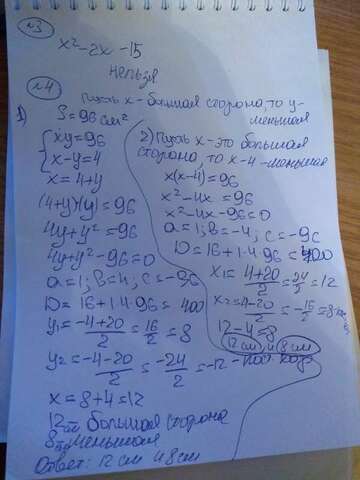 №3
x²-2x-15
нельзя
№4
Пусть x - большая сторона, то y-
меньшая
1) S=96 см²
xy=96
x-y=4
x=4+y
(4+y)(y)=96
4y+y²=96
4y+y²-96=0
a=1; b=4; c=-96
D=16+1·4·96=400
y₁=-4+20/2=16/2=8
y₂=-4-20/2=-24/2=-12 - пост. кор.
x=8+4=12
12 см большая сторона
8 см меньшая
Ответ: 12 см и 8 см
2) Пусть x-это большая
сторона, то x-4-меньшая
x(x-4)=96
x²-4x=96
x²-4x-96=0
a=1; b=-4; c=-96
D=16+1·4·96=400
x₁=4+20/2=24/2=12
x₂=4-20/2=-16/2=8
12-4=8
12 см и 8 см